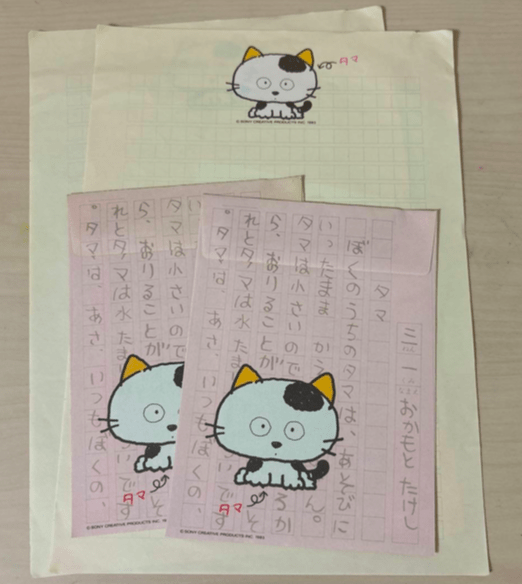 タマ
© SONY CREATIVE PRODUCTS INC. 1983
おかもと たけし
タマ
ぼくのうちのタマは、あそびに
いったまま かえ ん。
タマは小さいので るか
ら、おりることが そ
れとタマは水たま いです
。タマは、あさ、いつもぼくの、
タマ
© SONY CREATIVE PRODUCTS INC. 1983
い
タマは小さいので
ら、おりることが そ
れとタマは水たま いです
。タマは、あさ、いつもぼくの、
タマ
© SONY CREATIVE PRODUCTS INC.